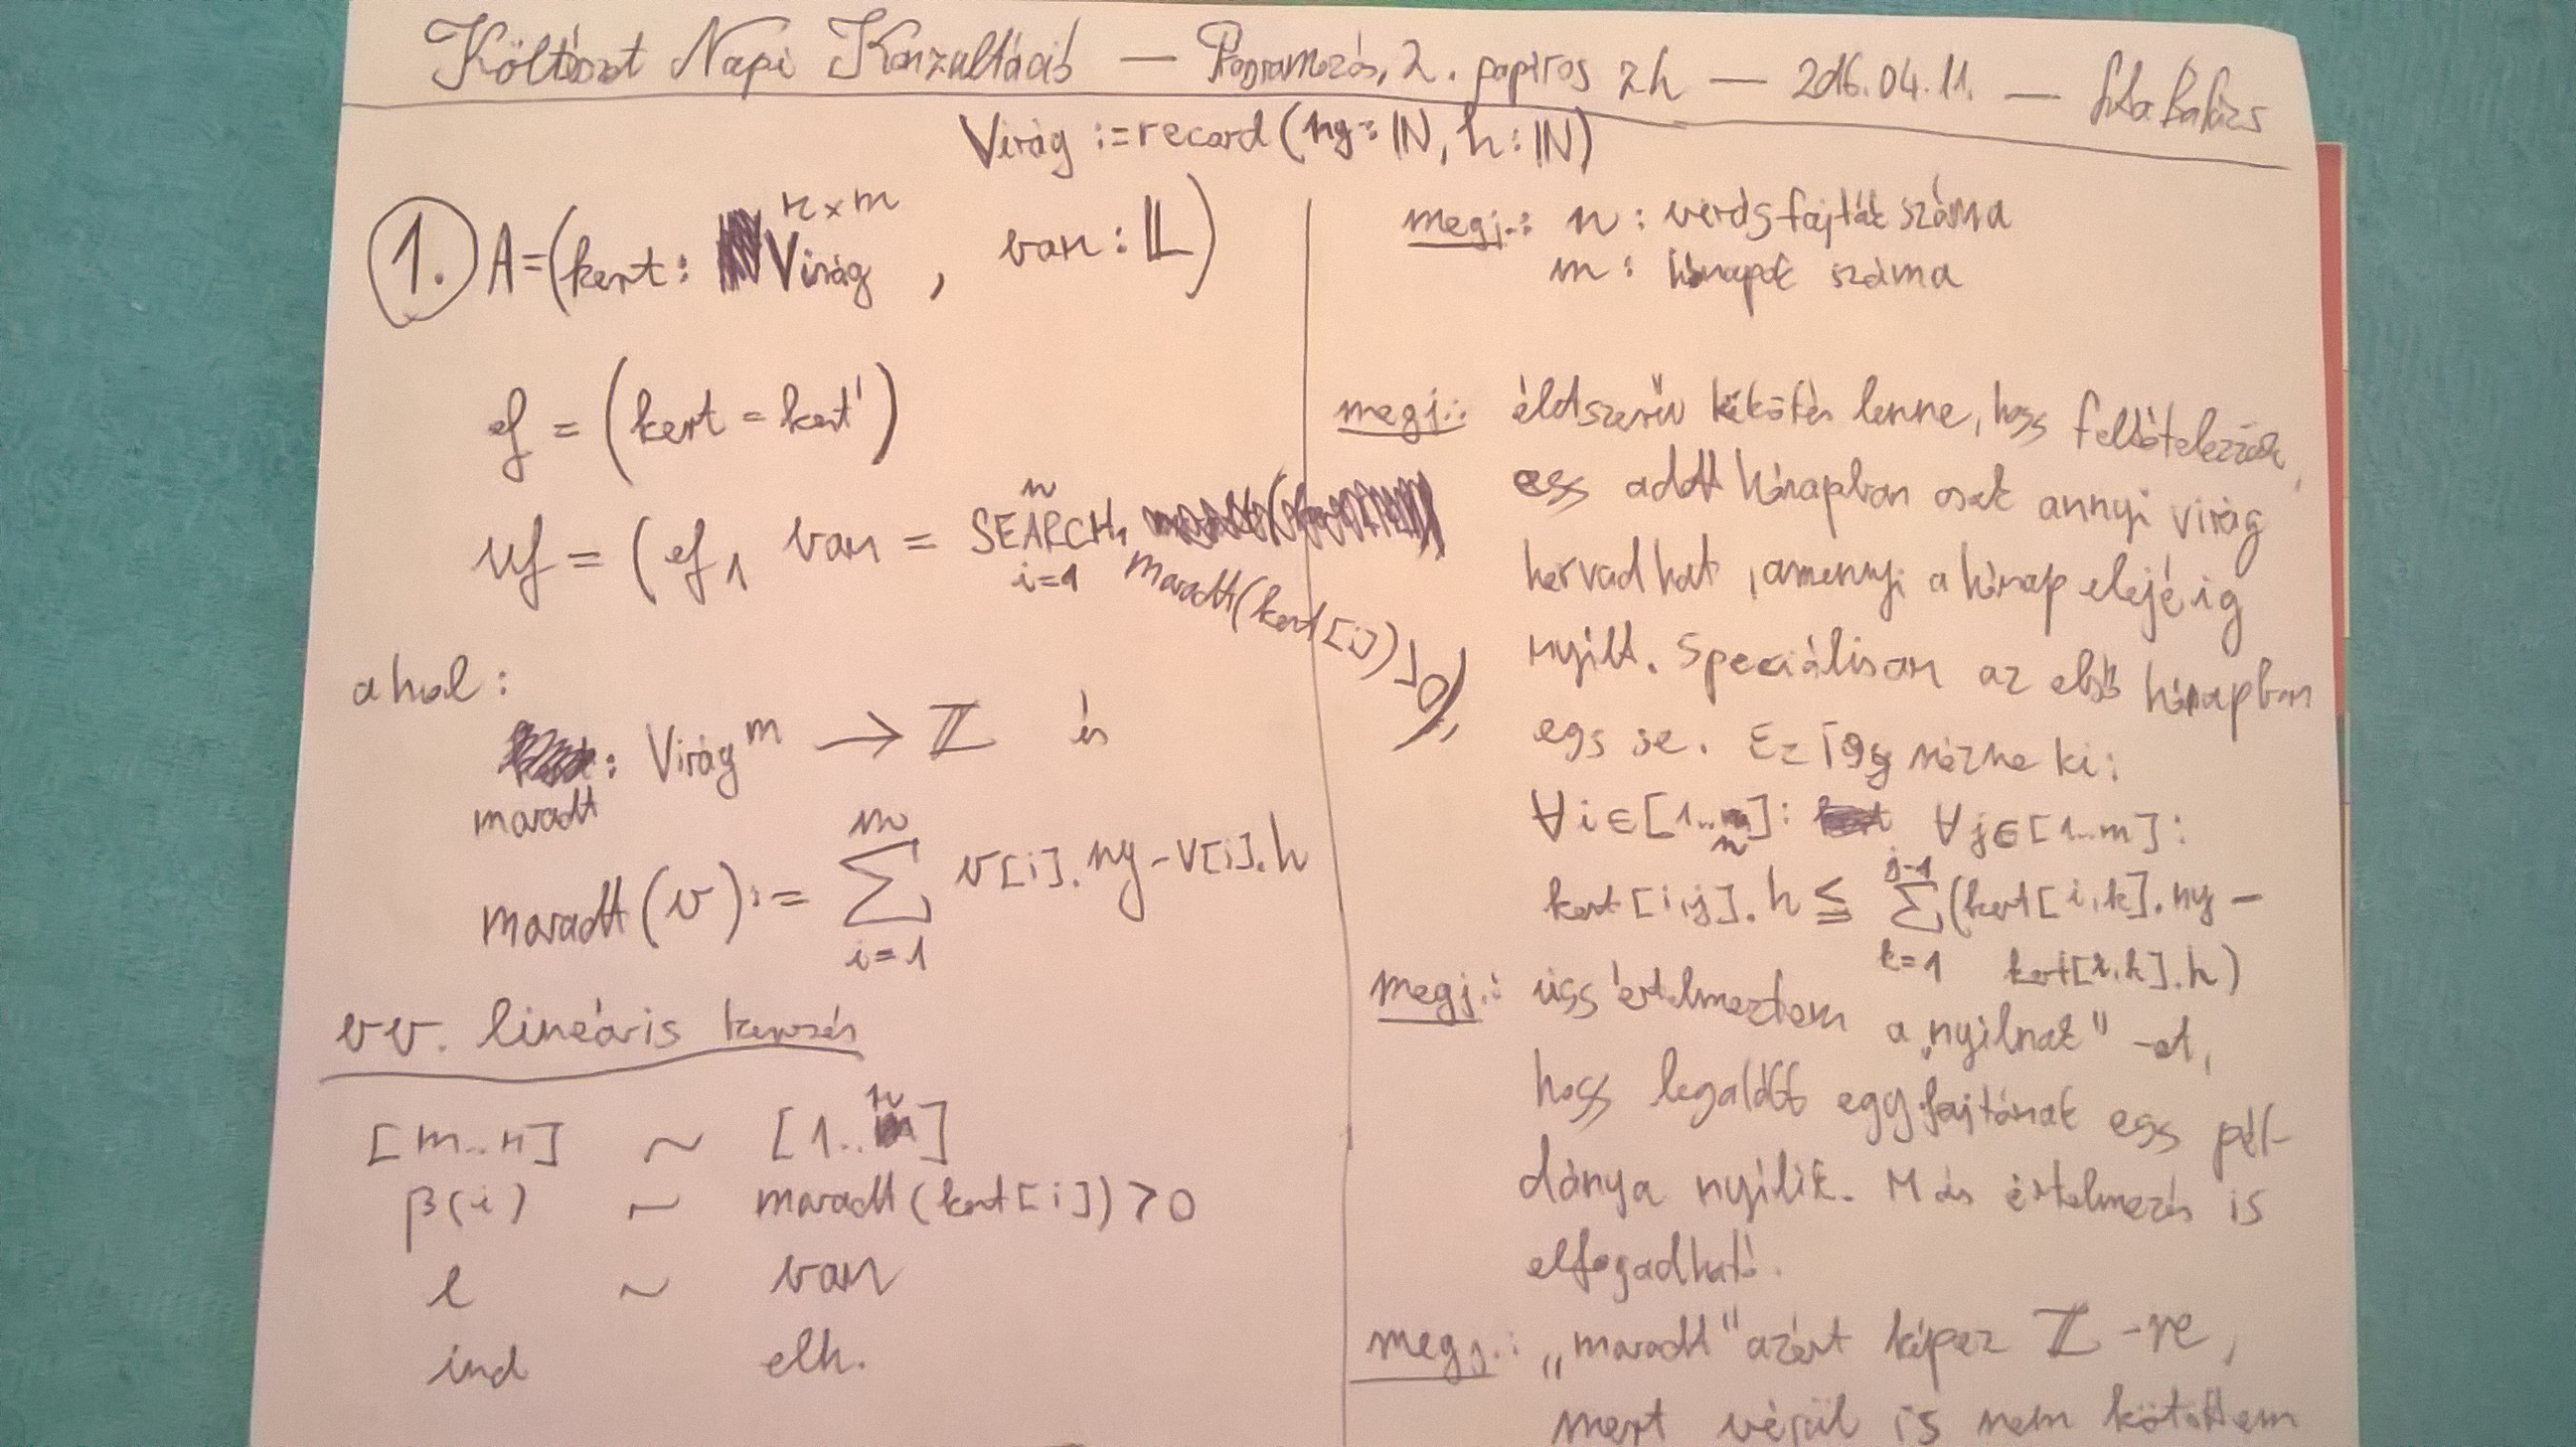 Költészet Napi Konzultáció — Programozás, 2. papíros zh — 2016.04.11. —
Virág := record(ny: ℕ, h: ℕ)
1. A=(kert: Virág^{n×m}, van: 𝕃)
ef = (kert = kert')
uf = (ef ∧ van = SEARCH_{i=1}^{n} maradt(kert[i])>0),
ahol:
maradt: Virág^m → ℤ és
maradt(v) := ∑_{i=1}^{m} v[i].ny - v[i].h
vv. lineáris keresés
[m..n] ~ [1..n]
β(i) ~ maradt(kert[i])>0
l ~ van
ind elh.
megj.: n: virágfajták száma
m: hónapok száma
megj.: életszerű kikötés lenne, hogy feltételezzük,
egy adott hónapban csak annyi virág
hervadhat, amennyi a hónap elejéig
nyílt. Speciálisan az első hónapban
egy se. Ez így nézne ki:
∀i∈[1..n]: ∀j∈[1..m]:
kert[i,j].h ≦ ∑_{k=1}^{j-1}(kert[i,k].ny -
kert[i,k].h)
megj.: úgy értelmeztem a „nyílnak"-ot,
hogy legalább egy fajtának egy pél-
dánya nyílik. Más értelmezés is
elfogadható.
megj.: „maradt" azért képez ℤ-re,
mert végül is nem kötöttem